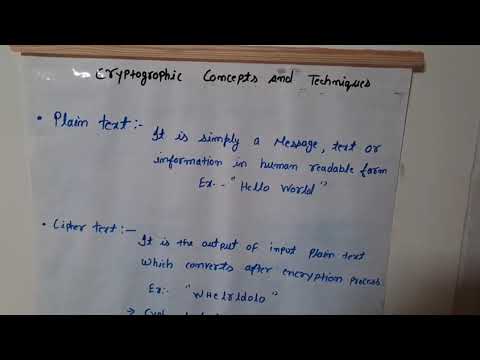 Cryptogrophic Concepts and Techniques
• Plain text:- It is simply a Message, text or
information in human readable form
Ex:- "Hello World"
• Cipher text:- It is the output of input plain text
which converts after encryption process
Ex:- "WHelrldolo"